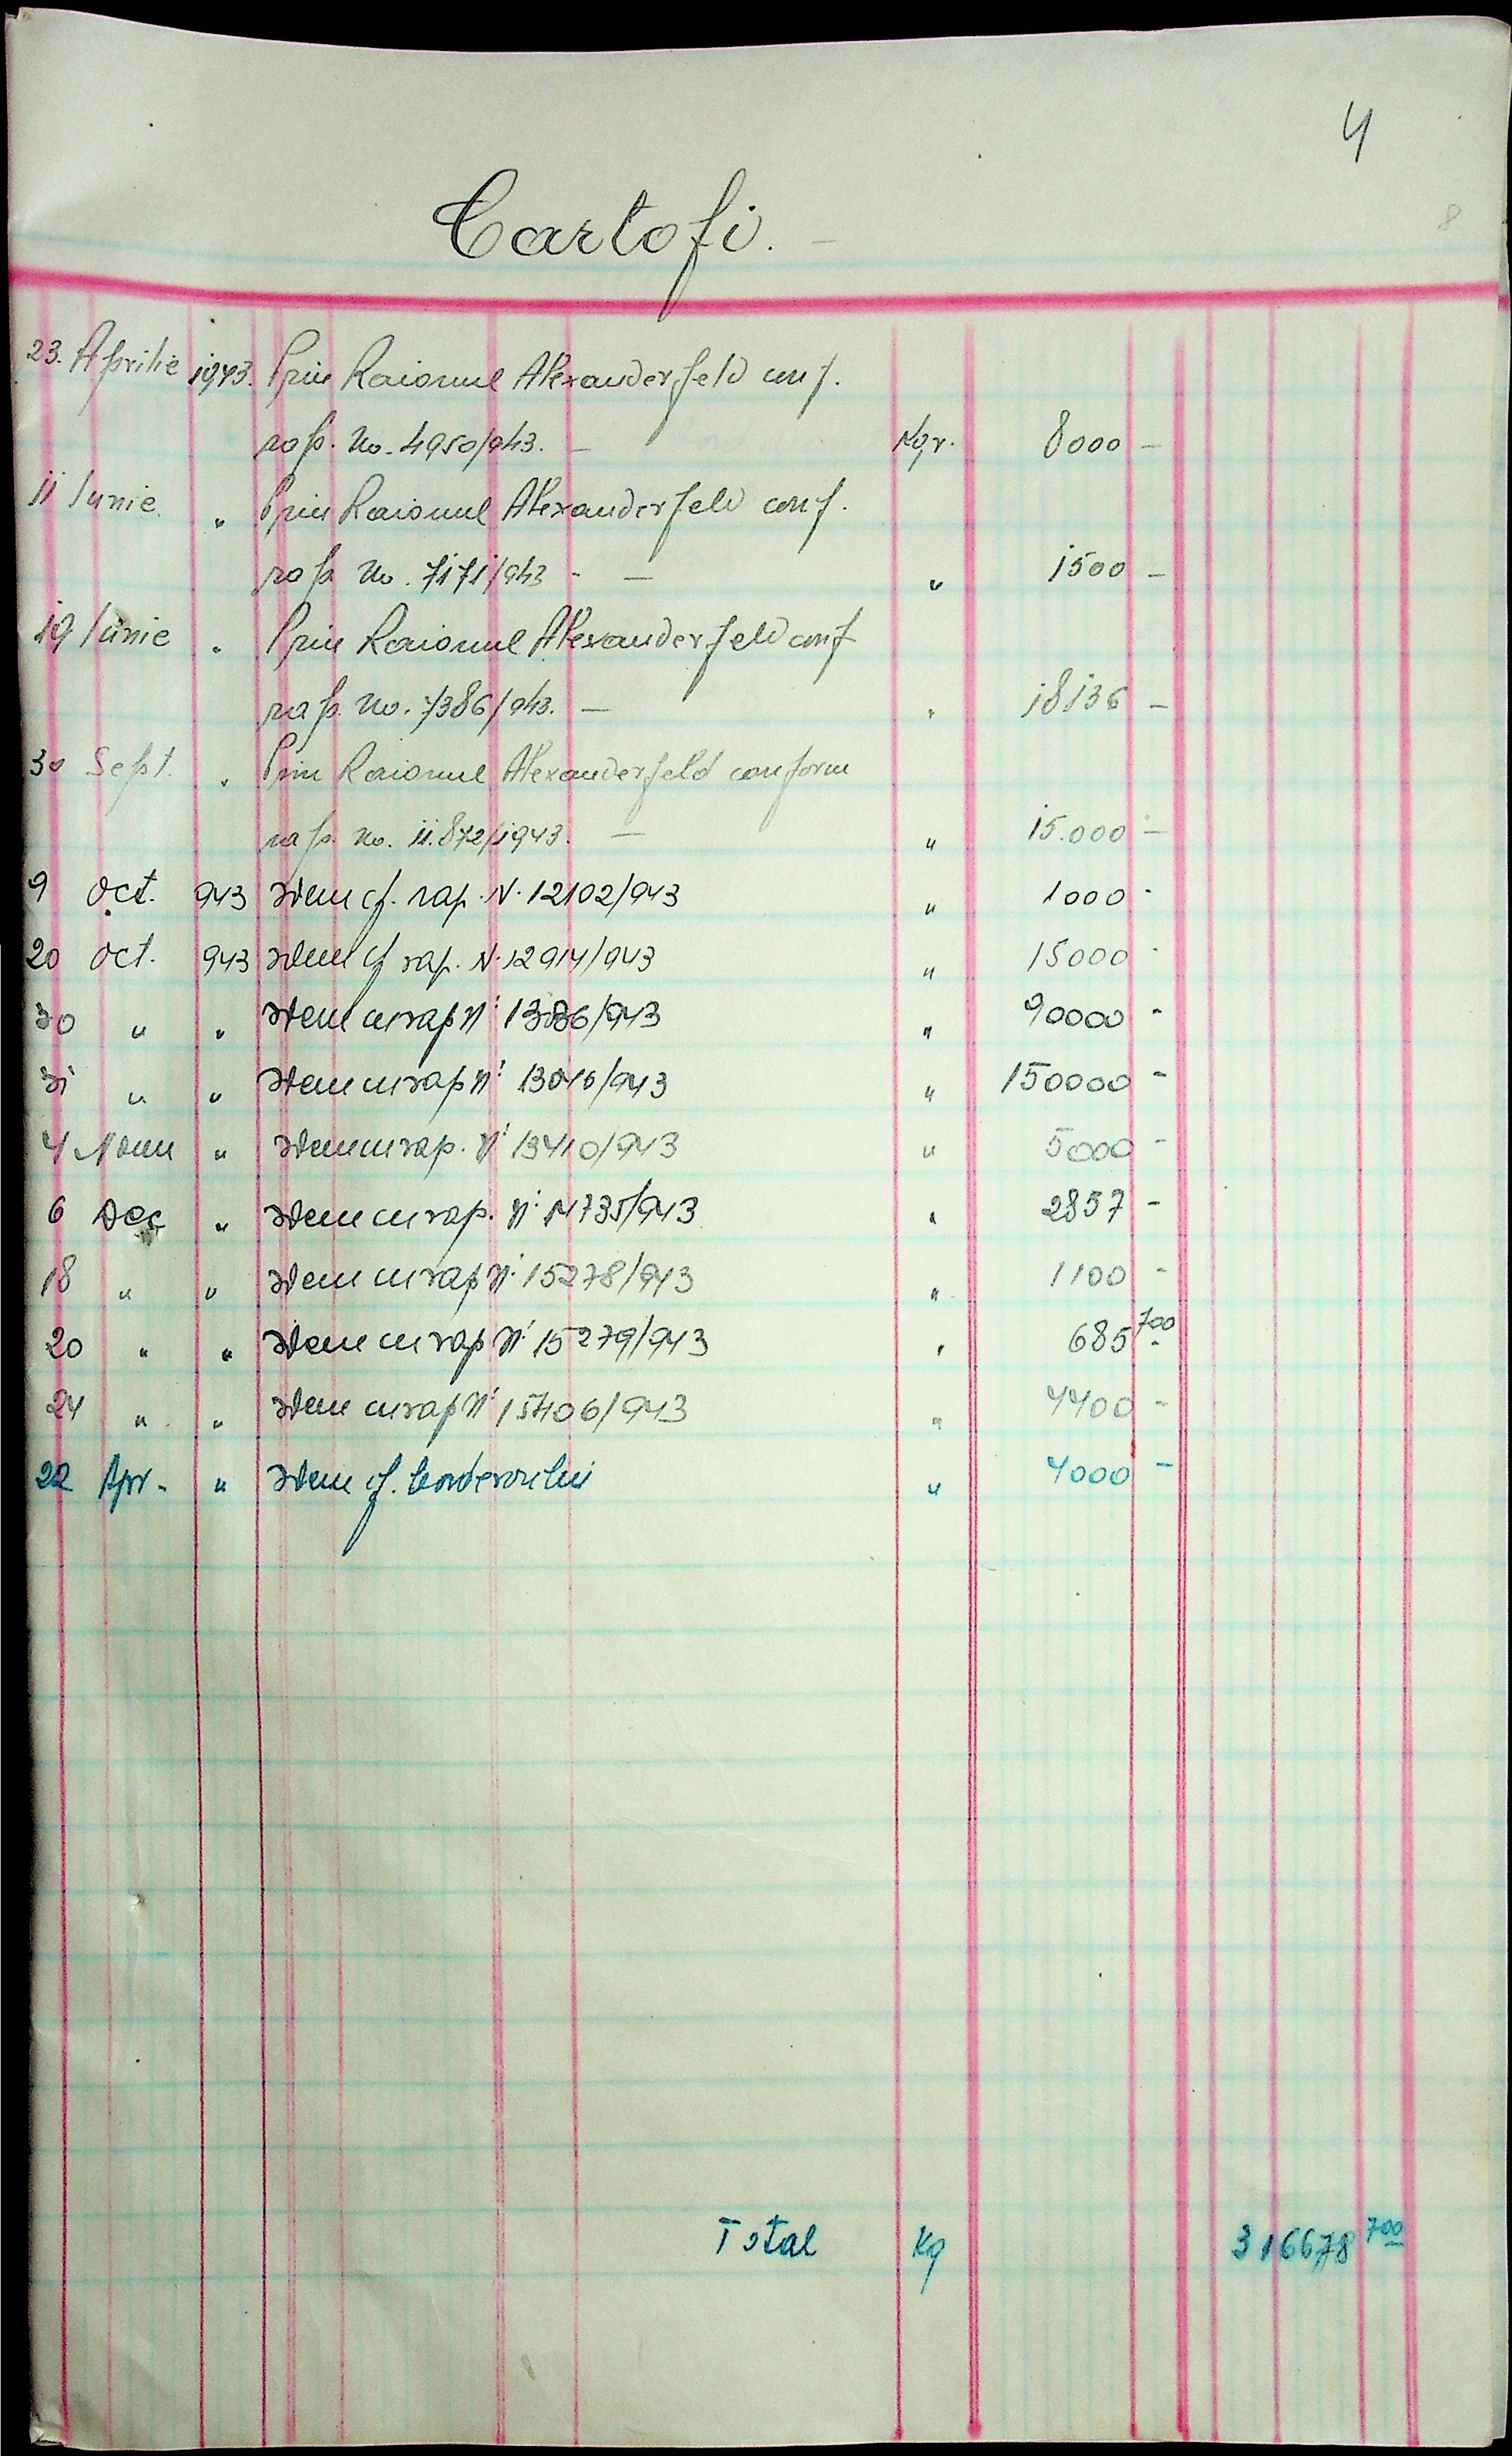 4
8
Cartofi. —
23. Aprilie 1943. Prin Raionul Alexanderfeld conf.
rap. No. 4950/943. — Kgr. 8000 —
11 Iunie. " Prin Raionul Alexanderfeld conf.
rap. No. 7171/943 - — " 1500 —
19 Iunie " Prin Raionul Alexanderfeld conf
rap. No. 7386/943. — " 18136 —
30 Sept. " Prin Raionul Alexanderfeld conform
rap. No. 11.872/1943. — " 15.000 —
9 Oct. 943 Idem cf. rap. N. 12102/943 " 1000 -
20 Oct. 943 Idem cf rap. N. 12914/943 " 15000 -
30 " " Idem cu rap N: /943 " 90000 -
31 " " Idem cu rap N: /943 " 150000 -
4 Noem " Idem cu rap. N: 13410/943 " 5000 -
6 Dec " Idem cu rap. N: 14735/943 " 2857 -
18 " " Idem cu rap N: 15278/943 " 1100 -
20 " " Idem cu rap N: 15279/943 " 685 700
24 " " Idem cu rap N: 15406/943 " 4400 -
22 Apr - " Idem cf. borderoului " 4000 -
Total Kg 316678 700